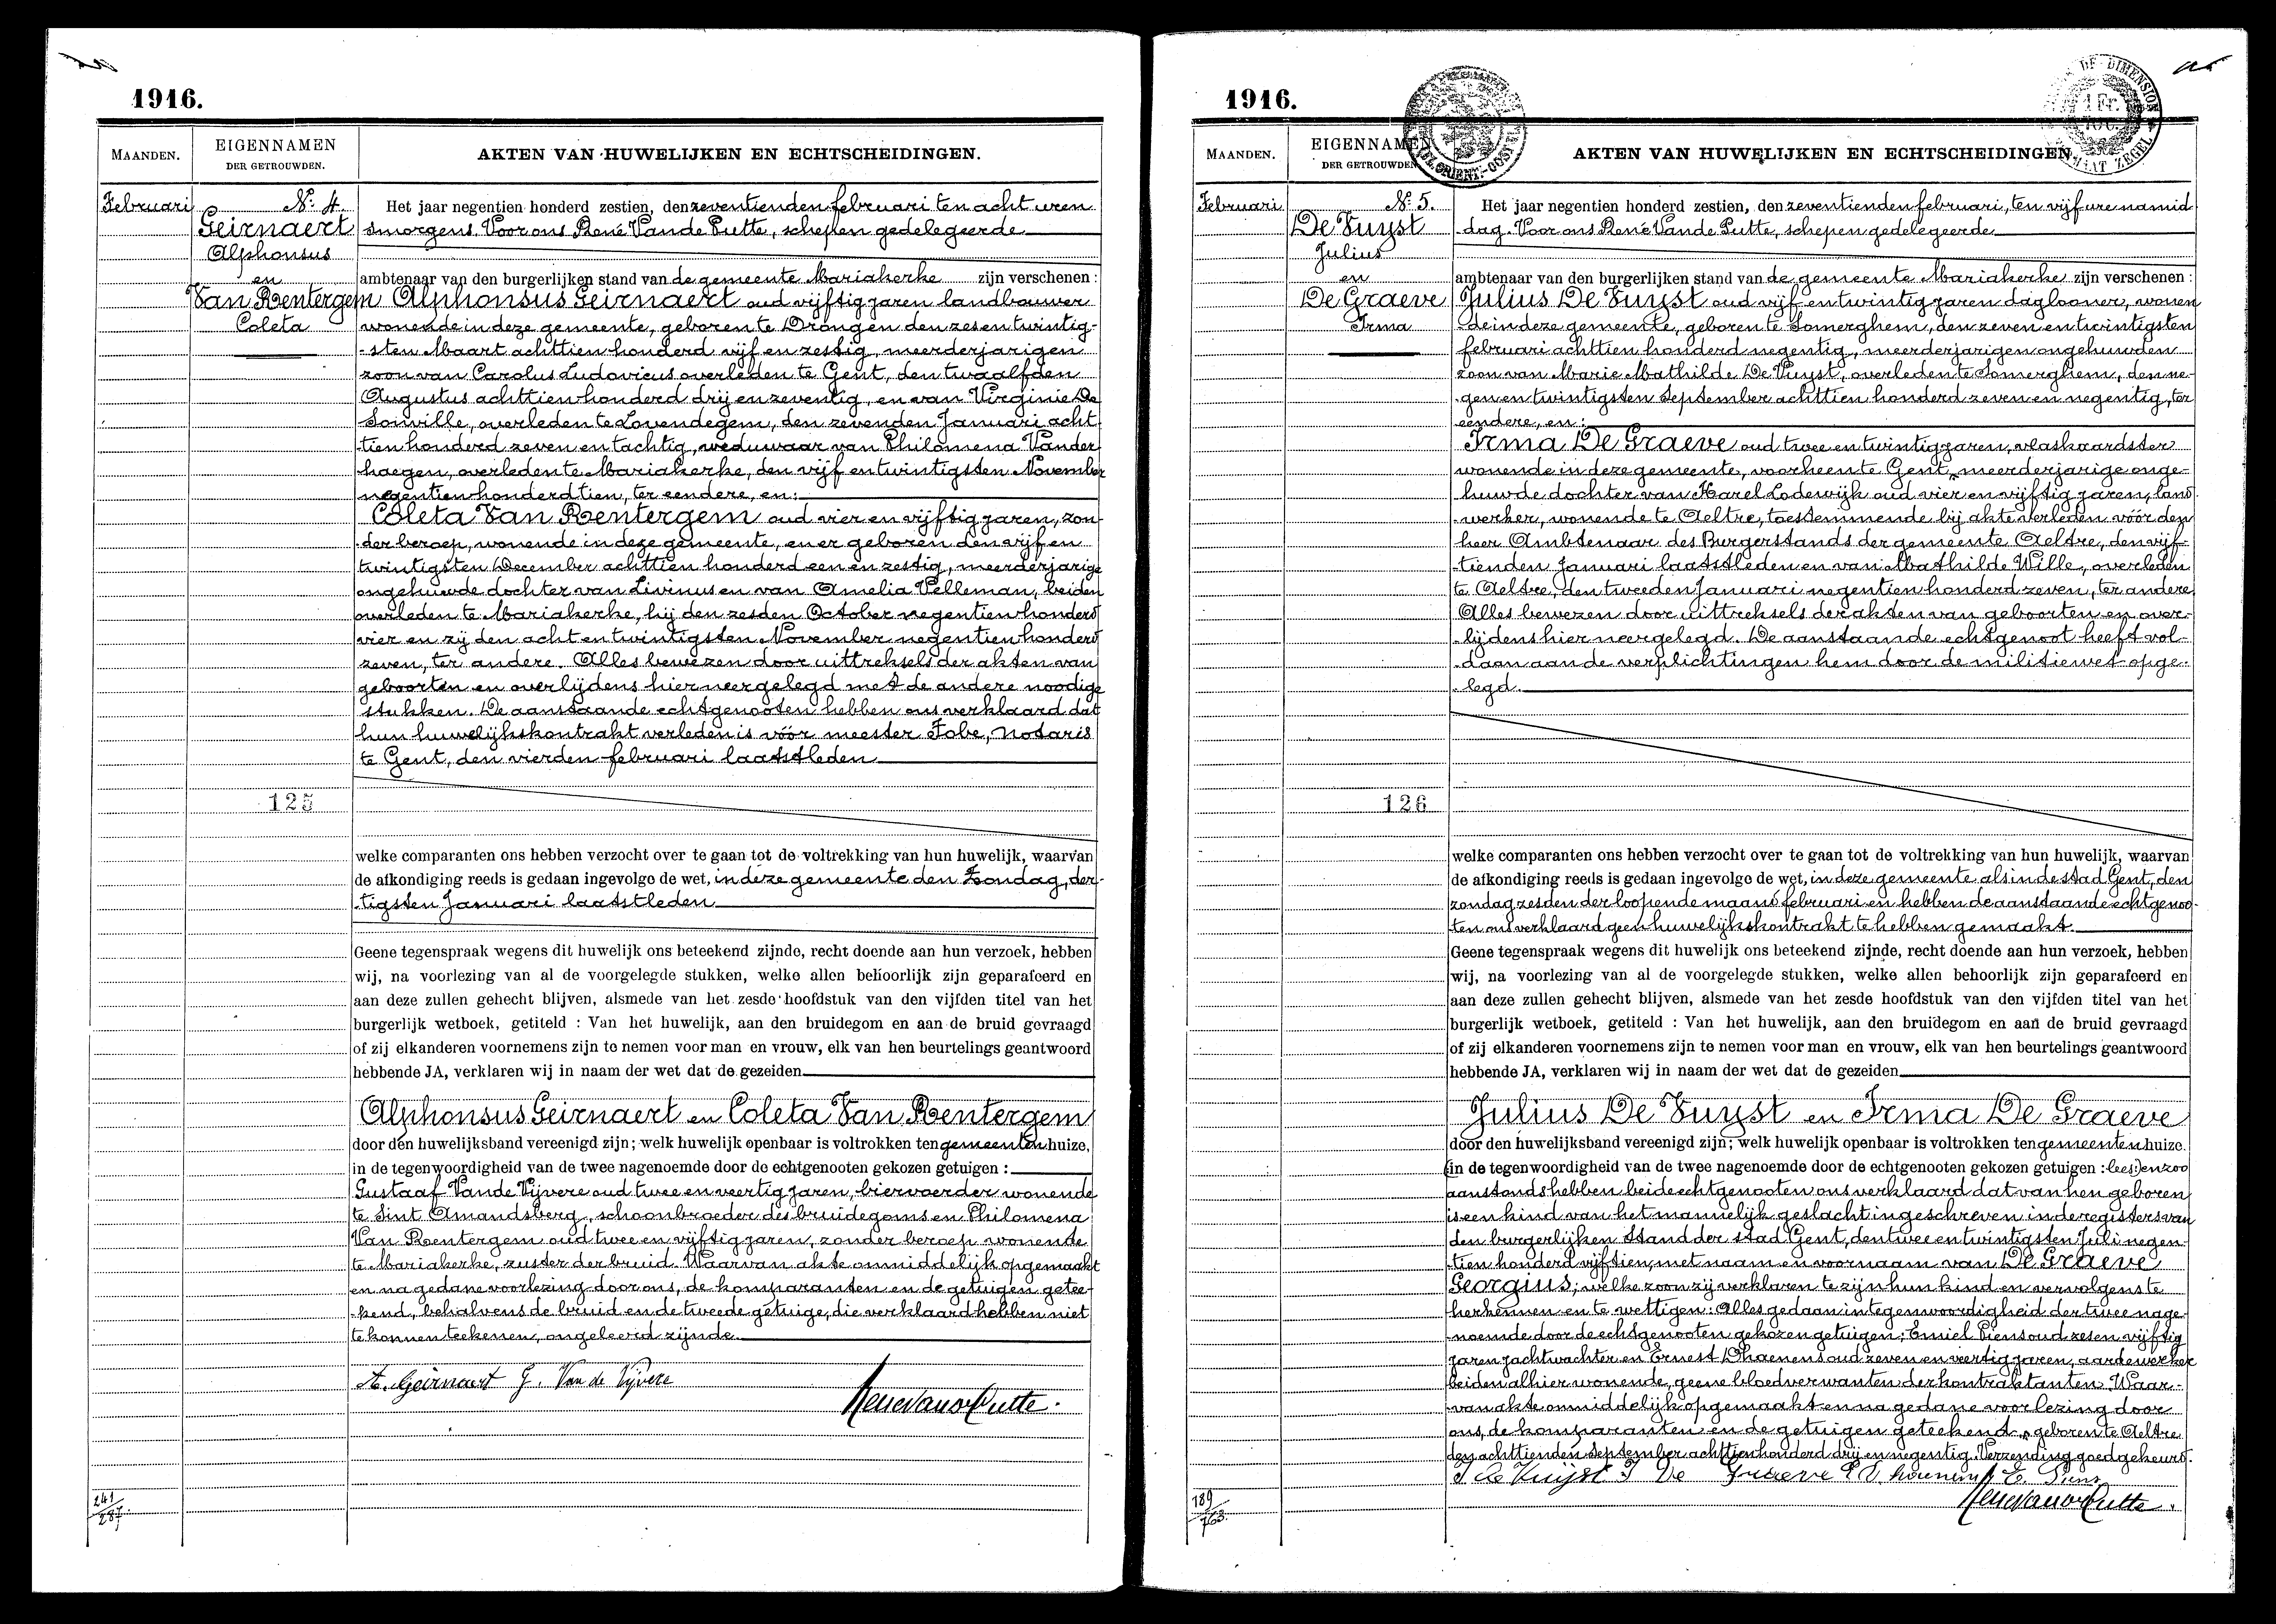 1916.
MAANDEN.
EIGENNAMEN
DER GETROUWDEN.
AKTEN VAN HUWELIJKEN EN ECHTSCHEIDINGEN.
Februari
No 4.
Geirnaert
Alphonsus
en
Van Rentergem
Coleta
Het jaar negentien honderd zestien, den zeventienden februari ten acht uren
smorgens Voor ons René Vande Putte, schepen gedelegeerde
ambtenaar van den burgerlijken stand van de gemeente Mariakerke zijn verschenen :
Alphonsus Geirnaert oud vijftig jaren landbouwer
wonende in deze gemeente, geboren te Drongen den zes en twintig-
-sten Maart achttien honderd vijf en zestig, meerderjarigen
zoon van Carolus Ludovicus overleden te Gent, den twaalfden
Augustus achttien honderd drij en zeventig, en van Virginie De
Sonville, overleden te Lovendegem, den zevenden Januari acht
tien honderd zeven en tachtig, weduwaar van Philomena Vander
haegen, overleden te Mariakerke, den vijf en twintigsten November
negentien honderd tien, ter eendere, en:
Coleta Van Rentergem oud vier en vijftig jaren, zon-
der beroep, wonende in deze gemeente, en er geboren den vijf en
twintigsten December achttien honderd een en zestig, meerderjarige
ongehuwde dochter van Livinus en van Amelia Velleman, beiden
overleden te Mariakerke, hij den zesden October negentien honderd
vier en zij den acht en twintigsten November negentien honderd
zeven, ter andere. Alles bewezen door uittreksels der akten van
geboorten en overlijdens hier neergelegd met de andere noodige
stukken. De aanstaande echtgenooten hebben ons verklaard dat
hun huwelijkskontrakt verleden is vóór meester Fobe, Notaris
te Gent, den vierden februari laatstleden
125
welke comparanten ons hebben verzocht over te gaan tot de voltrekking van hun huwelijk, waarvan
de afkondiging reeds is gedaan ingevolge de wet, in deze gemeente den Zondag, der-
-tigsten Januari laatstleden
Geene tegenspraak wegens dit huwelijk ons beteekend zijnde, recht doende aan hun verzoek, hebben
wij, na voorlezing van al de voorgelegde stukken, welke allen behoorlijk zijn geparafeerd en
aan deze zullen gehecht blijven, alsmede van het zesde hoofdstuk van den vijfden titel van het
burgerlijk wetboek, getiteld : Van het huwelijk, aan den bruidegom en aan de bruid gevraagd
of zij elkanderen voornemens zijn te nemen voor man en vrouw, elk van hen beurtelings geantwoord
hebbende JA, verklaren wij in naam der wet dat de gezeiden
Alphonsus Geirnaert en Coleta Van Rentergem
door den huwelijksband vereenigd zijn; welk huwelijk openbaar is voltrokken ten gemeentenhuize,
in de tegenwoordigheid van de twee nagenoemde door de echtgenooten gekozen getuigen :
Gustaaf Vande Vijvere oud twee en veertig jaren, biervoerder wonende
te Sint Amandsberg, schoonbroeder des bruidegoms en Philomena
Van Rentergem oud twee en vijftig jaren, zonder beroep wonende
te Mariakerke, zuster der bruid. Waarvan akte onmiddelijk opgemaakt
en na gedane voorlezing door ons, de komparanten en de getuigen getee-
-kend, behalvens de bruid en de tweede getuige, die verklaard hebben niet
te konnen teekenen, ongeleerd zijnde.
A. Geirnaert G. Van de Vijvere
Rene Vande Putte.
241
287.
1916.
MAANDEN.
EIGENNAMEN
DER GETROUWDEN.
AKTEN VAN HUWELIJKEN EN ECHTSCHEIDINGEN.
DE DIMENSION
1 Fr.
ZEGEL
Februari
No 5.
De Vuyst
Julius
en
De Graeve
Irma
Het jaar negentien honderd zestien, den zeventienden februari, ten vijf ure namid
dag. Voor ons René Vande Putte, schepen gedelegeerde
ambtenaar van den burgerlijken stand van de gemeente Mariakerke zijn verschenen :
Julius De Vuyst oud vijf en twintig jaren daglooner, wonen
-de in deze gemeente, geboren te Somerghem, den zeven en twintigsten
februari achttien honderd negentig, meerderjarigen ongehuwden
zoon van Marie Mathilde De Vuyst, overleden te Somerghem, den ne-
gen en twintigsten September achttien honderd zeven en negentig, ter
eendere, en:
Irma De Graeve oud twee en twintig jaren, vlaskaardster
wonende in deze gemeente, voorheen te Gent, meerderjarige onge-
huwde dochter van Karel Lodewijk oud vier en vijftig jaren, land
-werker, wonende te Aeltre, toestemmende bij akte verleden vóór den
heer Ambtenaar des Burgerstands der gemeente Aeltre, den vijf-
tienden Januari laatstleden en van Mathilde Wille, overleden
te Aeltre, den tweeden Januari negentien honderd zeven, ter andere
Alles bewezen door uittreksels der akten van geboorten en over-
-lijdens hier neergelegd. De aanstaande echtgenoot heeft vol-
-daan aan de verplichtingen hem door de militiewet opge-
-legd.
126
welke comparanten ons hebben verzocht over te gaan tot de voltrekking van hun huwelijk, waarvan
de afkondiging reeds is gedaan ingevolge de wet, in deze gemeente als in de stad Gent, den
zondag zesden der loopende maand februari en hebben de aanstaande echtgenoo-
ten ons verklaard geen huwelijkskontrakt te hebben gemaakt.
Geene tegenspraak wegens dit huwelijk ons beteekend zijnde, recht doende aan hun verzoek, hebben
wij, na voorlezing van al de voorgelegde stukken, welke allen behoorlijk zijn geparafeerd en
aan deze zullen gehecht blijven, alsmede van het zesde hoofdstuk van den vijfden titel van het
burgerlijk wetboek, getiteld : Van het huwelijk, aan den bruidegom en aan de bruid gevraagd
of zij elkanderen voornemens zijn te nemen voor man en vrouw, elk van hen beurtelings geantwoord
hebbende JA, verklaren wij in naam der wet dat de gezeiden
Julius De Vuyst en Irma De Graeve
door den huwelijksband vereenigd zijn; welk huwelijk openbaar is voltrokken ten gemeentenhuize.
(in de tegenwoordigheid van de twee nagenoemde door de echtgenooten gekozen getuigen : lees:) en zoo
aanstonds hebben beide echtgenooten ons verklaard dat van hen geboren
is een kind van het mannelijk geslacht ingeschreven in de registers van
den burgerlijken stand der stad Gent, den twee en twintigsten Juli negen-
-tien honderd vijftien, met naam en voornaam van De Graeve
Georgius; welke zoon zij verklaren te zijn hun kind en vervolgens te
herkennen en te wettigen: Alles gedaan in tegenwoordigheid der twee nage-
-noemde door de echtgenooten gekozen getuigen; Emiel Piens oud zes en vijftig
jaren jachtwachter en Ernest Dhaenens oud zeven en veertig jaren, aardewerker
beiden alhier wonende, geene bloedverwanten der kontraktanten. Waar-
-van akte onmiddelijk opgemaakt en na gedane voorlezing door
ons, de komparanten en de getuigen geteekend. geboren te Aeltre
den achttienden September achttien honderd drij en negentig. Verzending goedgekeurd.
J De Vuijst I De Graeve E. Piens
Rene Vande Putte.
189
763.